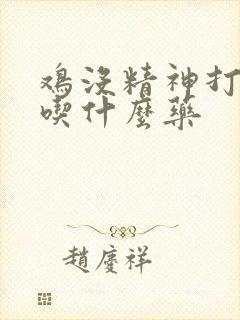 鸡沒精神打
喫什麼藥
趙慶祥